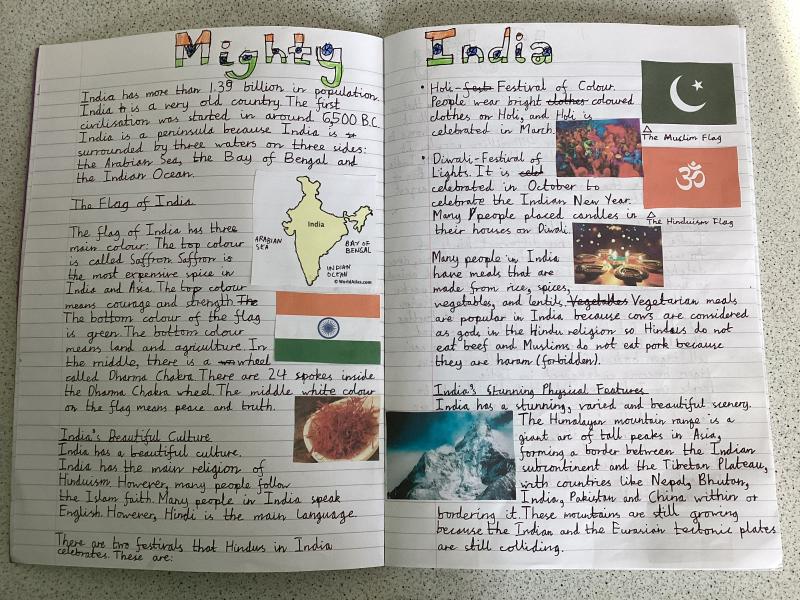 Mighty India
India has more than 1.39 billion in population.
India is is a very old country. The first
civilisation was started in around 6,500 B.C.
India is a peninsula because India is
surrounded by three waters on three sides:
the Arabian Sea, the Bay of Bengal and
the Indian Ocean.
The Flag of India
The flag of India has three
main colour: The top colour
is called Saffron. Saffron is
the most expensive spice in
India and Asia. The top colour
means courage and strength. The
The bottom colour of the flag
is green. The bottom colour
means land and agriculture. In
the middle, there is a wheel
called Dharma Chakra. There are 24 spokes inside
the Dharma Chakra wheel. The middle white colour
on the flag means peace and truth.
India
ARABIAN
SEA
BAY OF
BENGAL
INDIAN
OCEAN
© WorldAtlas.com
India's Beautiful Culture
India has a beautiful culture.
India has the main religion of
Hinduism. However, many people follow
the Islam faith. Many people in India speak
English. However, Hindi is the main language.
There are two festivals that Hindus in India
celebrates. These are:
• Holi- fest Festival of Colour.
People wear bright clothes coloured
clothes on Holi, and Holi is
celebrated in March.
The Muslim Flag
ॐ
The Hinduism Flag
• Diwali- Festival of
Lights. It is celel
celebrated in October to
celebrate the Indian New Year.
Many people placed candles in
their houses on Diwali.
Many people in India
have meals that are
made from rice, spices,
vegetables, and lentils. Vegetables Vegetarian meals
are popular in India because cows are considered
as gods in the Hindu religion so Hindus do not
eat beef and Muslims do not eat pork because
they are haram (forbidden).
India's Stunning Physical Features
India has a stunning, varied and beautiful scenery.
The Himalayan mountain range is a
giant arc of tall peaks in Asia,
forming a border between the Indian
subcontinent and the Tibetan Plateau,
with countries like Nepal, Bhutan,
India, Pakistan and China within or
bordering it. These mountains are still growing
because the Indian and the Eurasian tectonic plates
are still colliding.